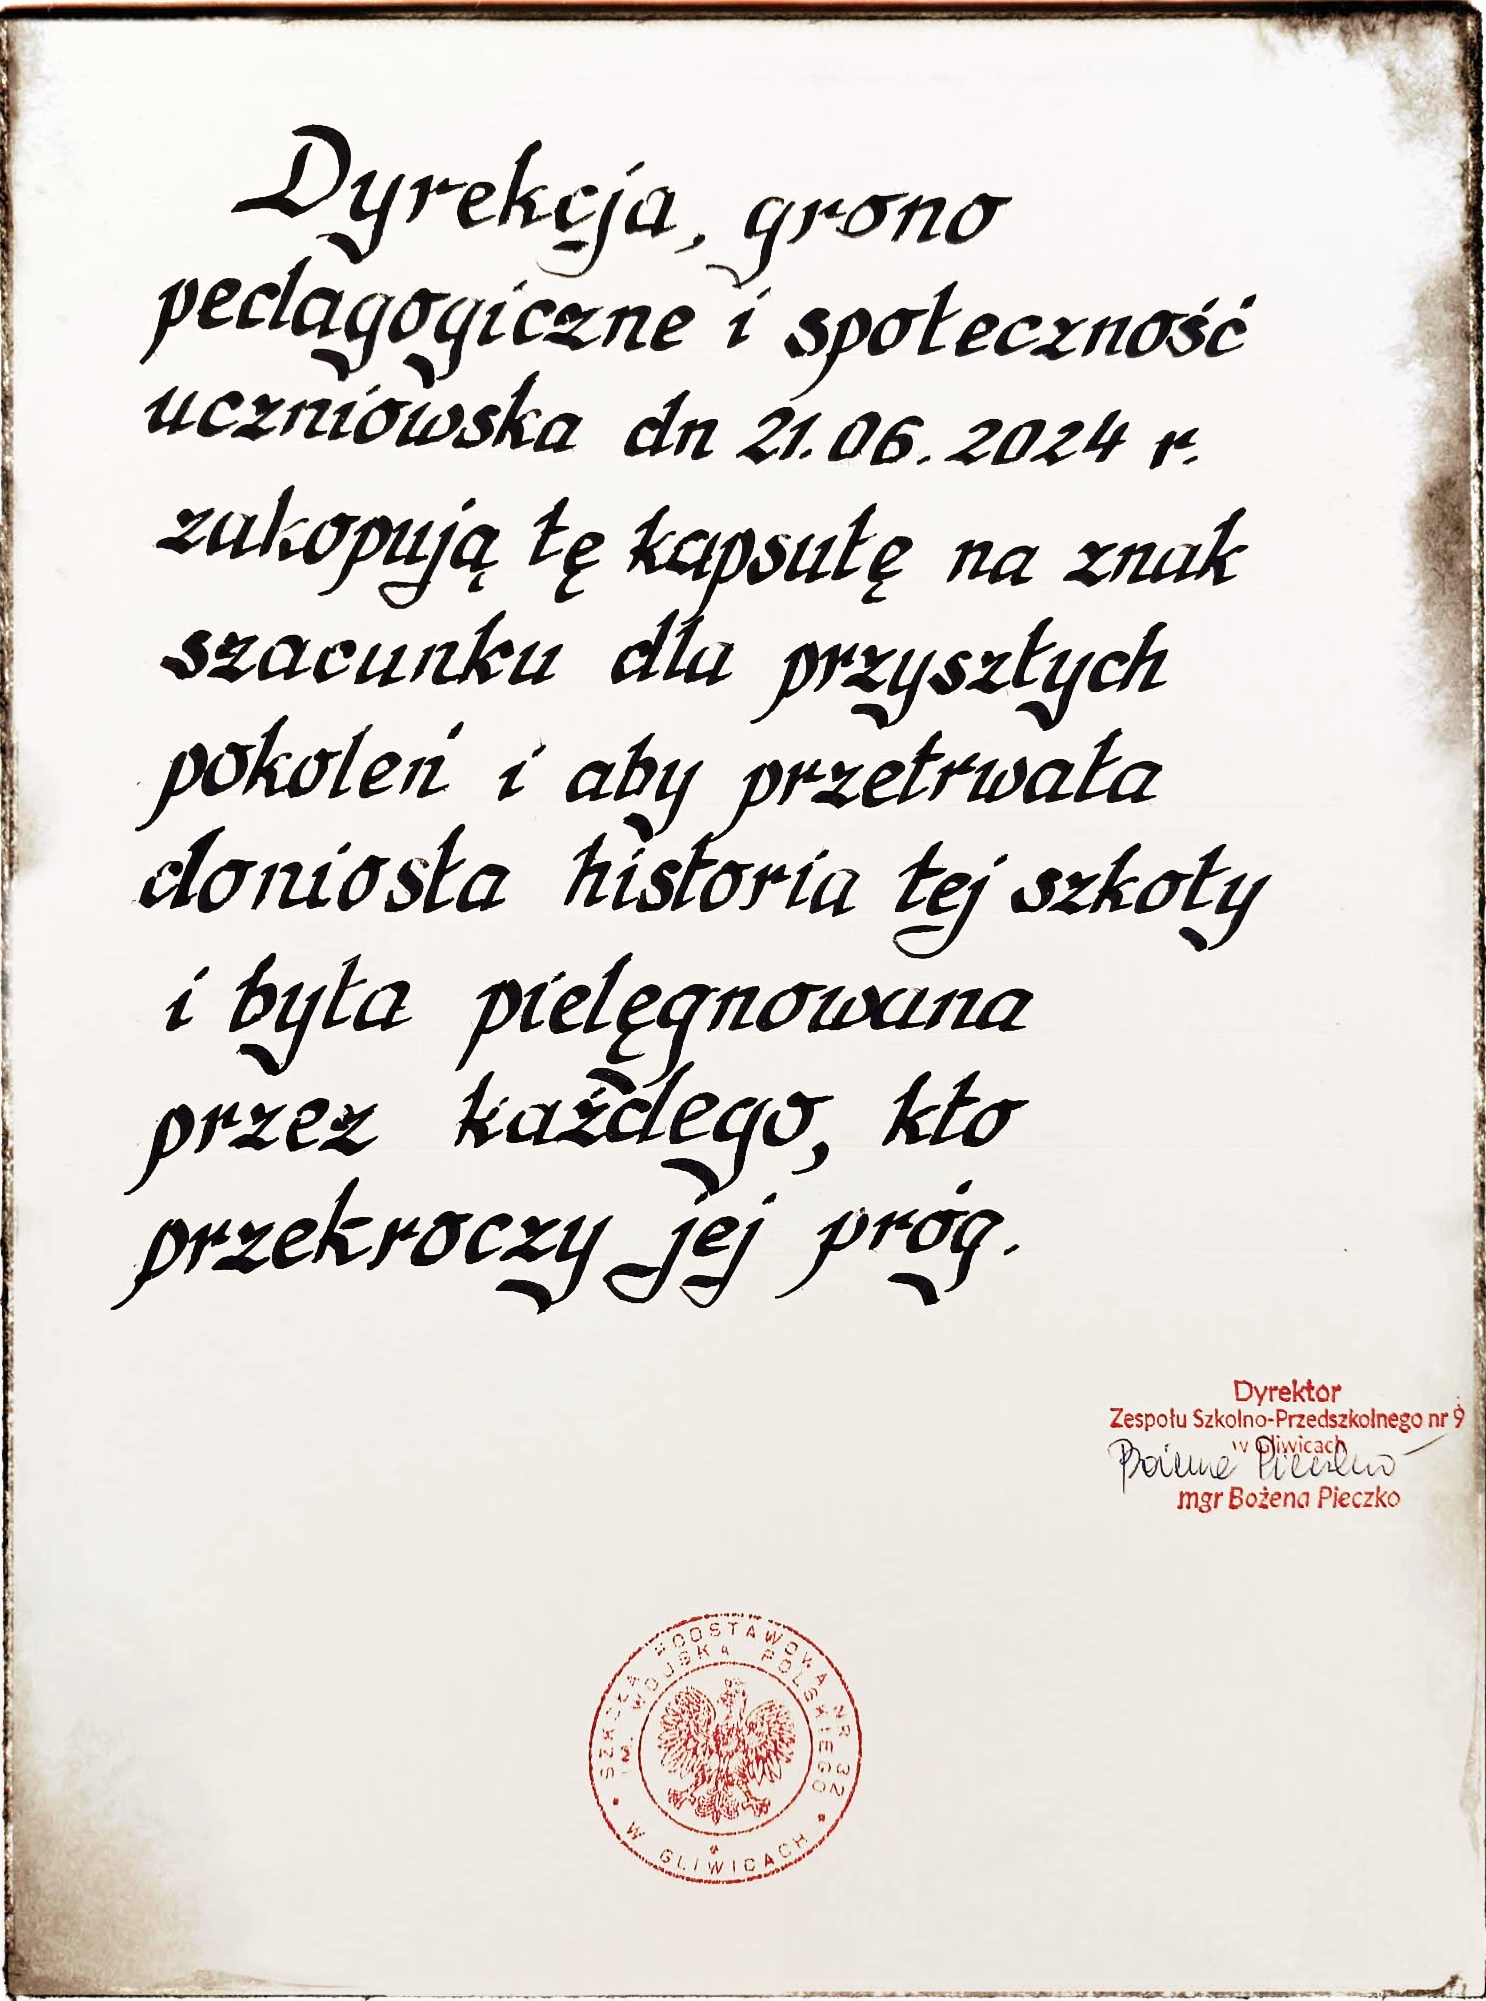 Dyrekcja, grono
pedagogiczne i społeczność
uczniowska dn 21.06.2024 r.
zakopują tę kapsułę na znak
szacunku dla przyszłych
pokoleń i aby przetrwała
doniosła historia tej szkoły
i była pielęgnowana
przez każdego, kto
przekroczy jej próg.
Dyrektor
Zespołu Szkolno-Przedszkolnego nr 9
w Gliwicach
Bożena Pieczko
mgr Bożena Pieczko
SZKOŁA PODSTAWOWA NR 32
IM. WOJSKA POLSKIEGO
* W GLIWICACH *